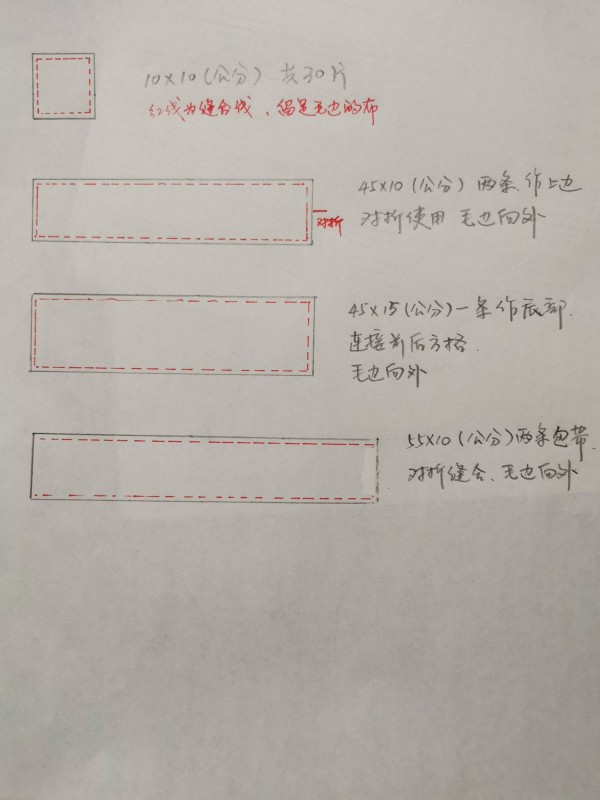 10×10(公分) 共30片
红线为缝合线、留足毛边的布
45×10(公分) 两条.作上边
对折使用 毛边向外
对折
45×15(公分)一条作底部.
连接前后方格.
毛边向外
55×10(公分)两条包带.
对折缝合、毛边向外